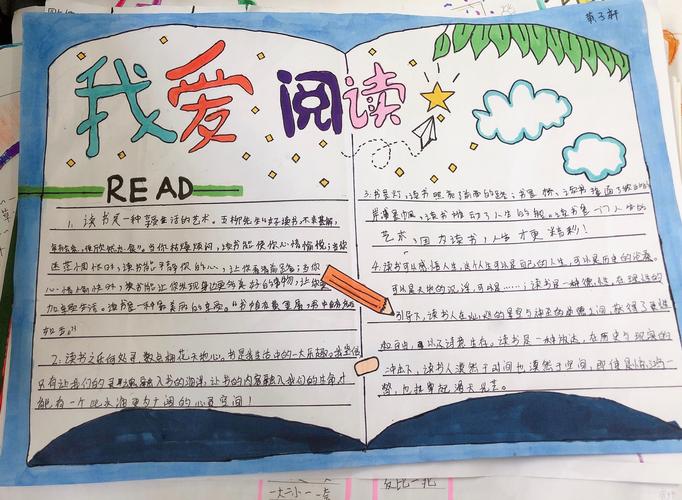 我爱阅读
READ
1、读书是一种享受生活的艺术。五柳先生"好读书,不求甚解,
每有会意,便欣然忘食。"当你枯燥烦闷,读书能使你心情愉悦;当你
迷茫惆怅时,读书能平静你的心,让你看清前路;当你
心情愉快时,读书能让你发现身边更多美好的事物,让你更
加享受生活。读书是一种最美丽的享受。"书中自有黄金屋,书中自有颜
如玉。"
2、读书之乐何处寻,数点梅花天地心。书是我生活中的一大乐趣。我坚信
只有让我们的灵魂融入书的海洋,让书的内容融入我们的生命才
能有一个比水洞更为广阔的心灵空间!
3.书是灯,读书照亮了前面的路;书是桥,读书接通了彼此的
岸;书是帆,读书推动了人生的船。读书是一门人生的
艺术,因为读书,人生才更精彩!
4.读书可以感悟人生,这个人生可以是自己的人生,可以是历史的沧桑。
可以是天地的沉浮,可以是……;读书是一种德性,在理性的
引导下,读书人在心灵的星空与神圣的崇德之间,获得了更理
性的自由,
诗意生存。读书是一种放达,在历史与现实的
冲击下,读书人漠然于时间也漠然于空间,即使是伤痕
势,也挂牵起满天星花。